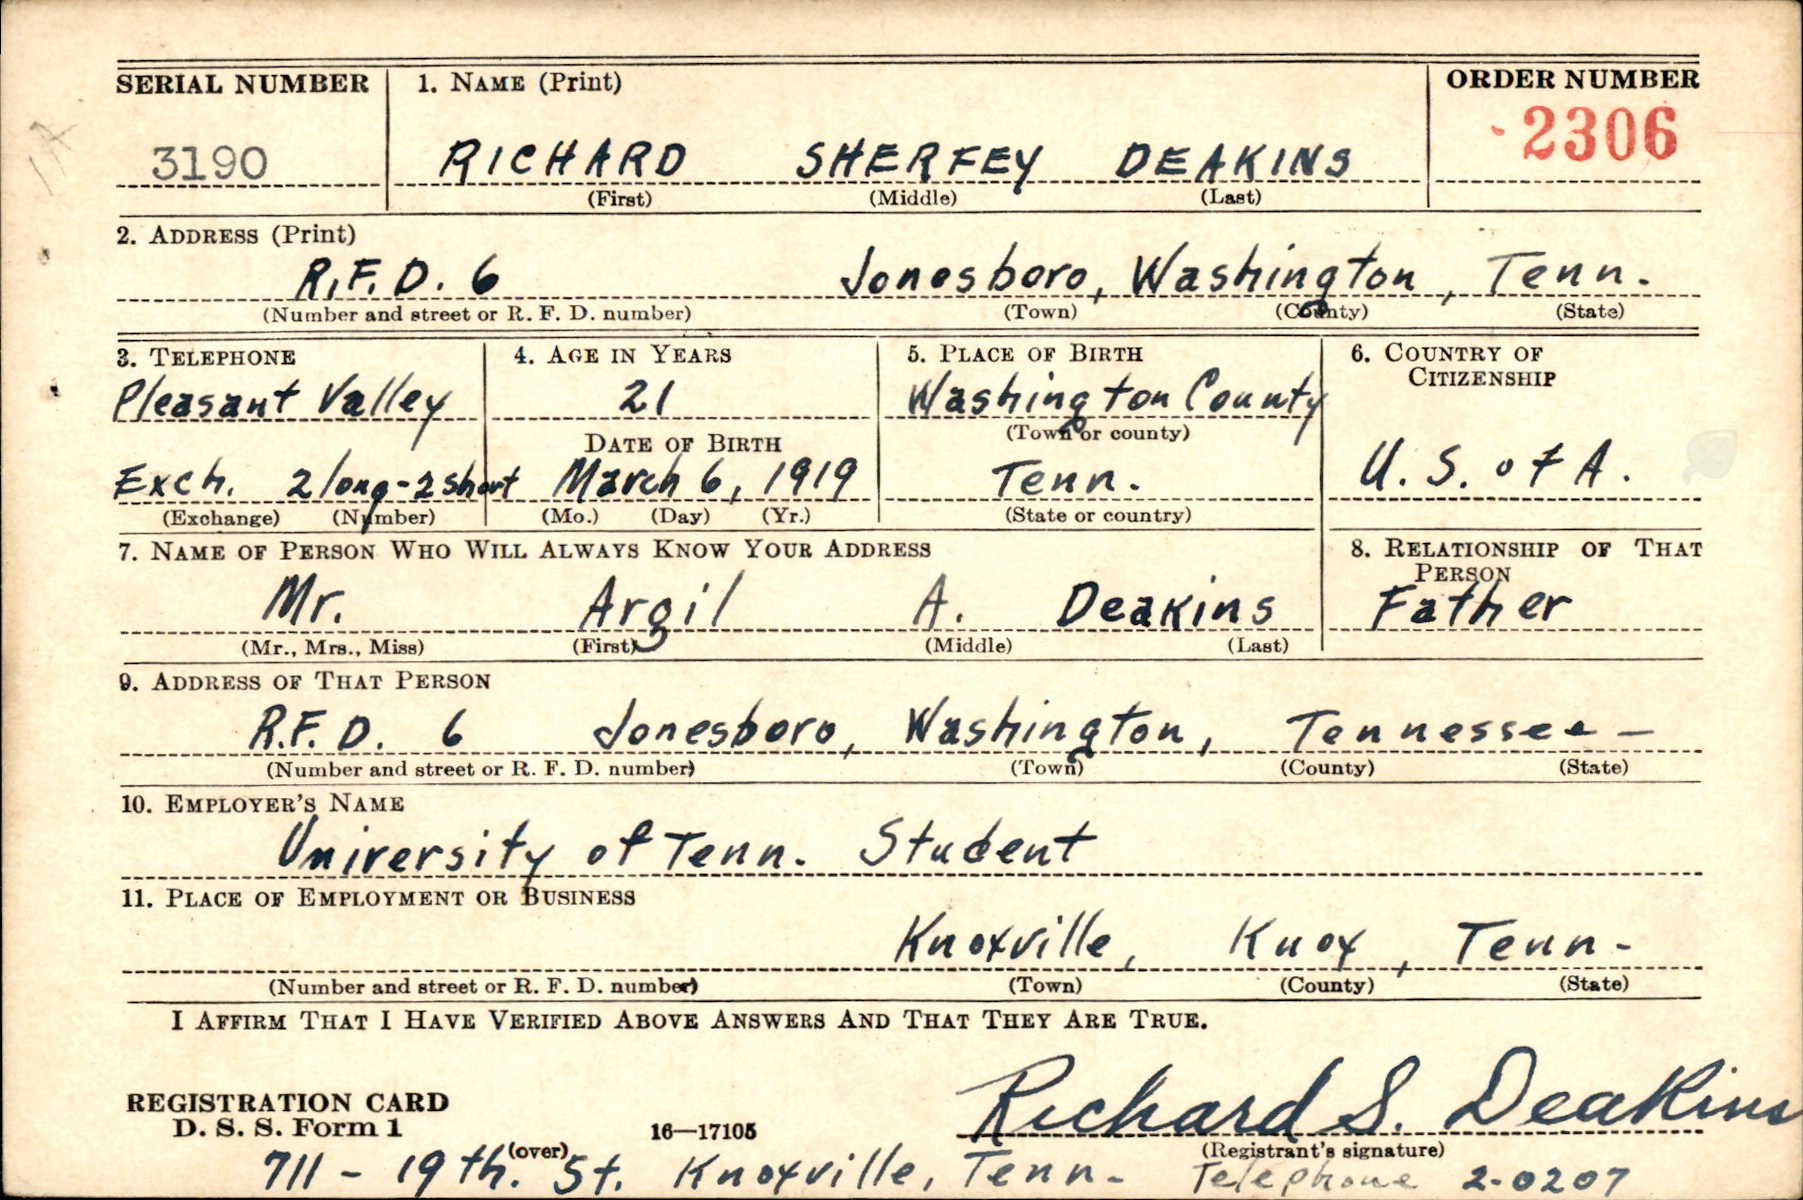 SERIAL NUMBER 1. NAME (Print) ORDER NUMBER
3190 RICHARD SHERFEY DEAKINS 2306
(First) (Middle) (Last)
2. ADDRESS (Print)
R.F.D. 6 Jonesboro, Washington, Tenn.
(Number and street or R. F. D. number) (Town) (County) (State)
3. TELEPHONE 4. AGE IN YEARS 5. PLACE OF BIRTH 6. COUNTRY OF
CITIZENSHIP
Pleasant Valley 21 Washington County
DATE OF BIRTH (Town or county)
Exch. 2 long-2 short March 6, 1919 Tenn. U. S. of A.
(Exchange) (Number) (Mo.) (Day) (Yr.) (State or country)
7. NAME OF PERSON WHO WILL ALWAYS KNOW YOUR ADDRESS 8. RELATIONSHIP OF THAT
PERSON
Mr. Argil A. Deakins Father
(Mr., Mrs., Miss) (First) (Middle) (Last)
9. ADDRESS OF THAT PERSON
R.F.D. 6 Jonesboro, Washington, Tennessee-
(Number and street or R. F. D. number) (Town) (County) (State)
10. EMPLOYER'S NAME
University of Tenn. Student
11. PLACE OF EMPLOYMENT OR BUSINESS
Knoxville, Knox, Tenn-
(Number and street or R. F. D. number) (Town) (County) (State)
I AFFIRM THAT I HAVE VERIFIED ABOVE ANSWERS AND THAT THEY ARE TRUE.
Richard S. Deakins
REGISTRATION CARD
D. S. S. Form 1 16—17105
(over) (Registrant's signature)
711 - 19th. St. Knoxville, Tenn- Telephone 2-0207